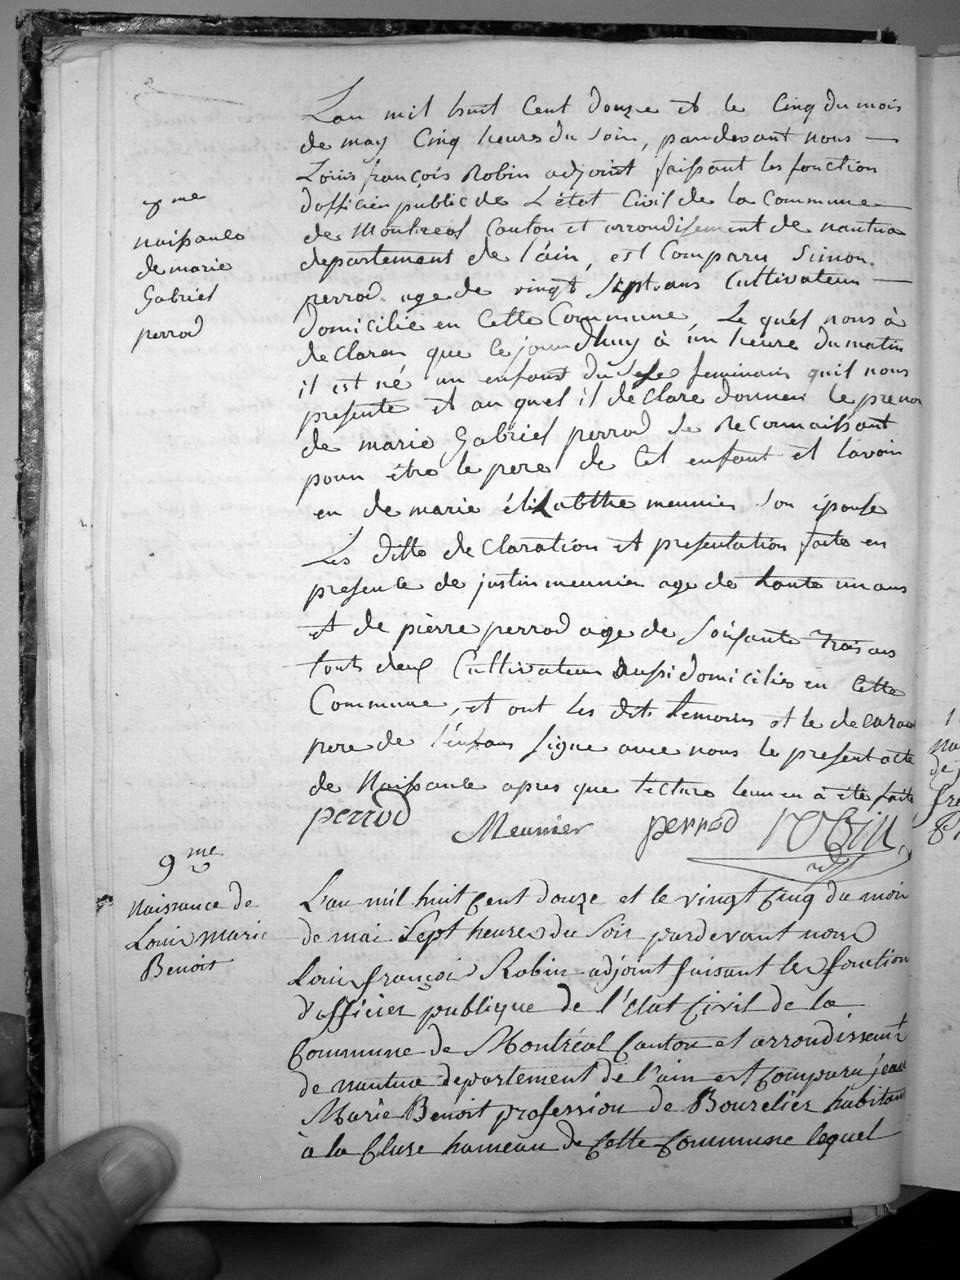 L'an mil huit Cent douze et le Cinq du mois
de may Cinq heures du Soir, pardevant nous
Louis françois Robin adjoint faissant les fonction
d'officier public de L'état Civil de la Commune
de Montreal Canton et arrondisement de nantua
departement de l'ain, est Comparu Simon
perrod age de vingt Sept ans Cultivateur
domicilié en Cette Commune, Le quel nous à
declarer que cejourdhuy à un heure du matin
il est né un enfant du Sexe feminain quil nous
presente et au quel il declare donner le prenon
de marie Gabriel perrod Se Reconnaissant
pour être le pere de Cet enfant et l'avoir
eu de marie élizabthe meunier Son épouse
Les ditte declaration et presentation faite en
presence de justin meunier age de trante un ans
et de pièrre perrod age de Soixante trois ans
touts deux Cultivateur aussi domicilies en Cette
Commune, et ont les dits temoins et le declarant
pere de l'enfans signe avec nous le present acte
de Naissance apres que lecture leur en à été faite
perrod Meunier perrod Robin
adjt
8me
naissance
de marie
Gabriel
perrod
9me
Naissance de
Louis Marie
Benoit
L'an mil huit Cent douze et le vingt Cinq du mois
de mai Sept heures du Soir pardevant nous
Louis françois Robin adjoint faisant les fonction
d'officier publique de l'état Civil de la
Commune de Montréal Canton et arrondissemt
de nantua departement de l'ain est Comparu jean
Marie Benoit profession de Bourelier habitant
à la Cluse hameau de Cette Commune lequel